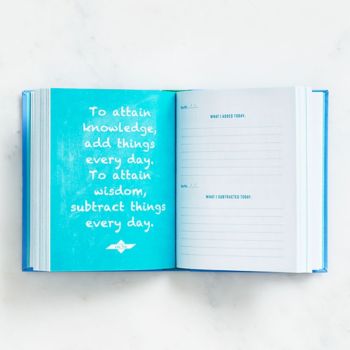 To attain
knowledge,
add things
every day.
To attain
wisdom,
subtract things
every day.
WHAT I ADDED TODAY:
WHAT I SUBTRACTED TODAY: